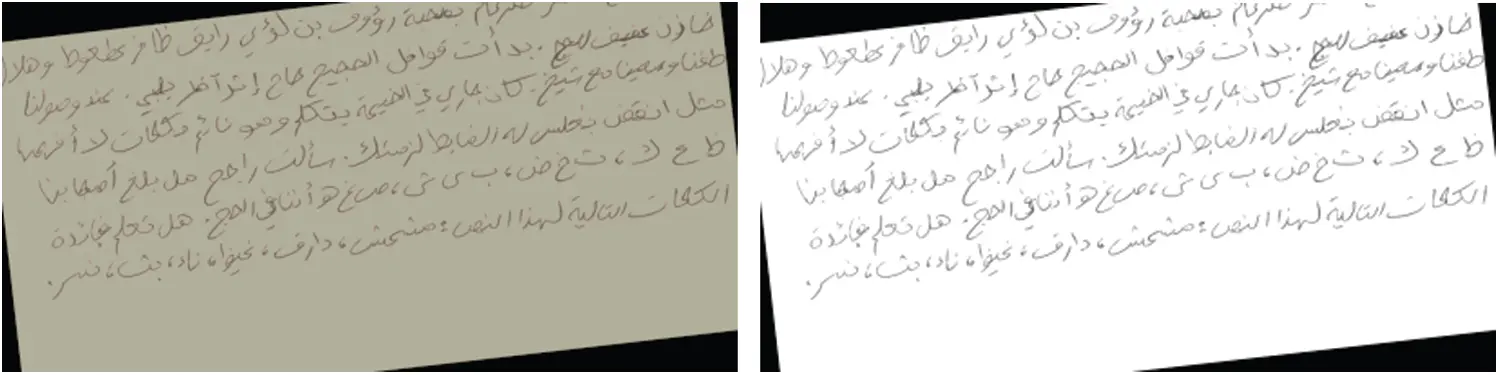 ضرغام بصحبة رؤوف بن لؤي رايق ظافر عطعوط وهلال
خازن عفيف . بدأت قوافل الحجيج حاج إثر آخر يلبي . عند وصولنا
طفنا وسعينا مع شيخ . كان بجاري في الخيمة يتكلم وهو نائم بكلمات لا أفهمها
مثل انقض بغلس له الضابط لزمتك . سألت راجح هل بلغ أصحابنا
ظ ع ك ، ث خ ض ، ب ى ش ، ص غ هـ أننا في الحج . هل تعلم بفائدة
الكلمات التالية لهذا النص : مشمش ، دارف ، ناد ، بث ، نسر .
ضرغام بصحبة رؤوف بن لؤي رايق ظافر عطعوط وهلال
خازن عفيف . بدأت قوافل الحجيج حاج إثر آخر يلبي . عند وصولنا
طفنا وسعينا مع شيخ . كان بجاري في الخيمة يتكلم وهو نائم بكلمات لا أفهمها
مثل انقض بغلس له الضابط لزمتك . سألت راجح هل بلغ أصحابنا
ظ ع ك ، ث خ ض ، ب ى ش ، ص غ هـ أننا في الحج . هل تعلم بفائدة
الكلمات التالية لهذا النص : مشمش ، دارف ، ناد ، بث ، نسر .